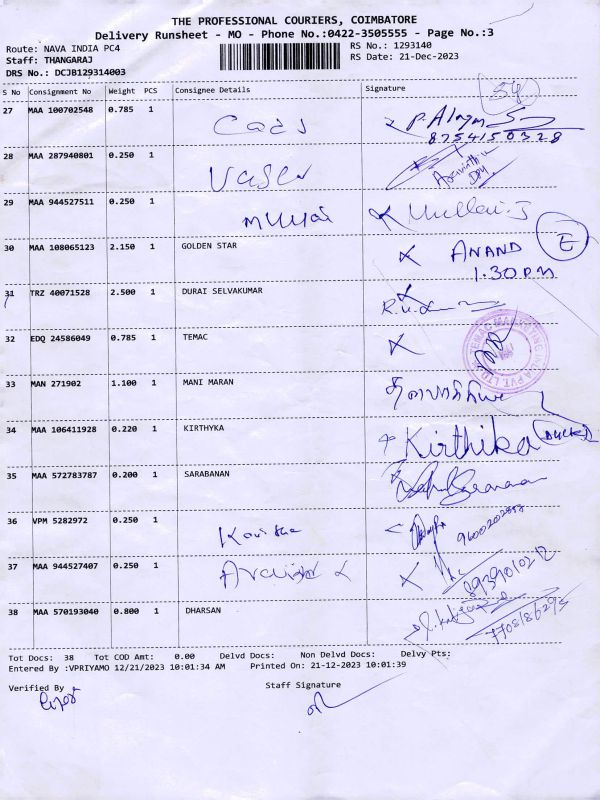 THE PROFESSIONAL COURIERS, COIMBATORE
Delivery Runsheet - MO - Phone No.:0422-3505555 - Page No.:3
Route: NAVA INDIA PC4 RS No.: 1293140
Staff: THANGARAJ RS Date: 21-Dec-2023
DRS No.: DCJB129314003
S No Consignment No Weight PCS Consignee Details Signature
54
27 MAA 100702548 0.785 1
8754150328
28 MAA 287940801 0.250 1
Aravinth
29 MAA 944527511 0.250 1 Mullai Mullai.J
30 MAA 108065123 2.150 1 GOLDEN STAR ANAND E
1.30 PM
31 TRZ 40071528 2.500 1 DURAI SELVAKUMAR
32 EDQ 24586049 0.785 1 TEMAC
33 MAN 271902 1.100 1 MANI MARAN
34 MAA 106411928 0.220 1 KIRTHYKA Kirthika
35 MAA 572783787 0.200 1 SARABANAN
36 VPM 5282972 0.250 1 Kavitha
37 MAA 944527407 0.250 1 8939010212
38 MAA 570193040 0.800 1 DHARSAN
7708186293
Tot Docs: 38 Tot COD Amt: 0.00 Delvd Docs: Non Delvd Docs: Delvy Pts:
Entered By :VPRIYAMO 12/21/2023 10:01:34 AM Printed On: 21-12-2023 10:01:39
Verified By Staff Signature